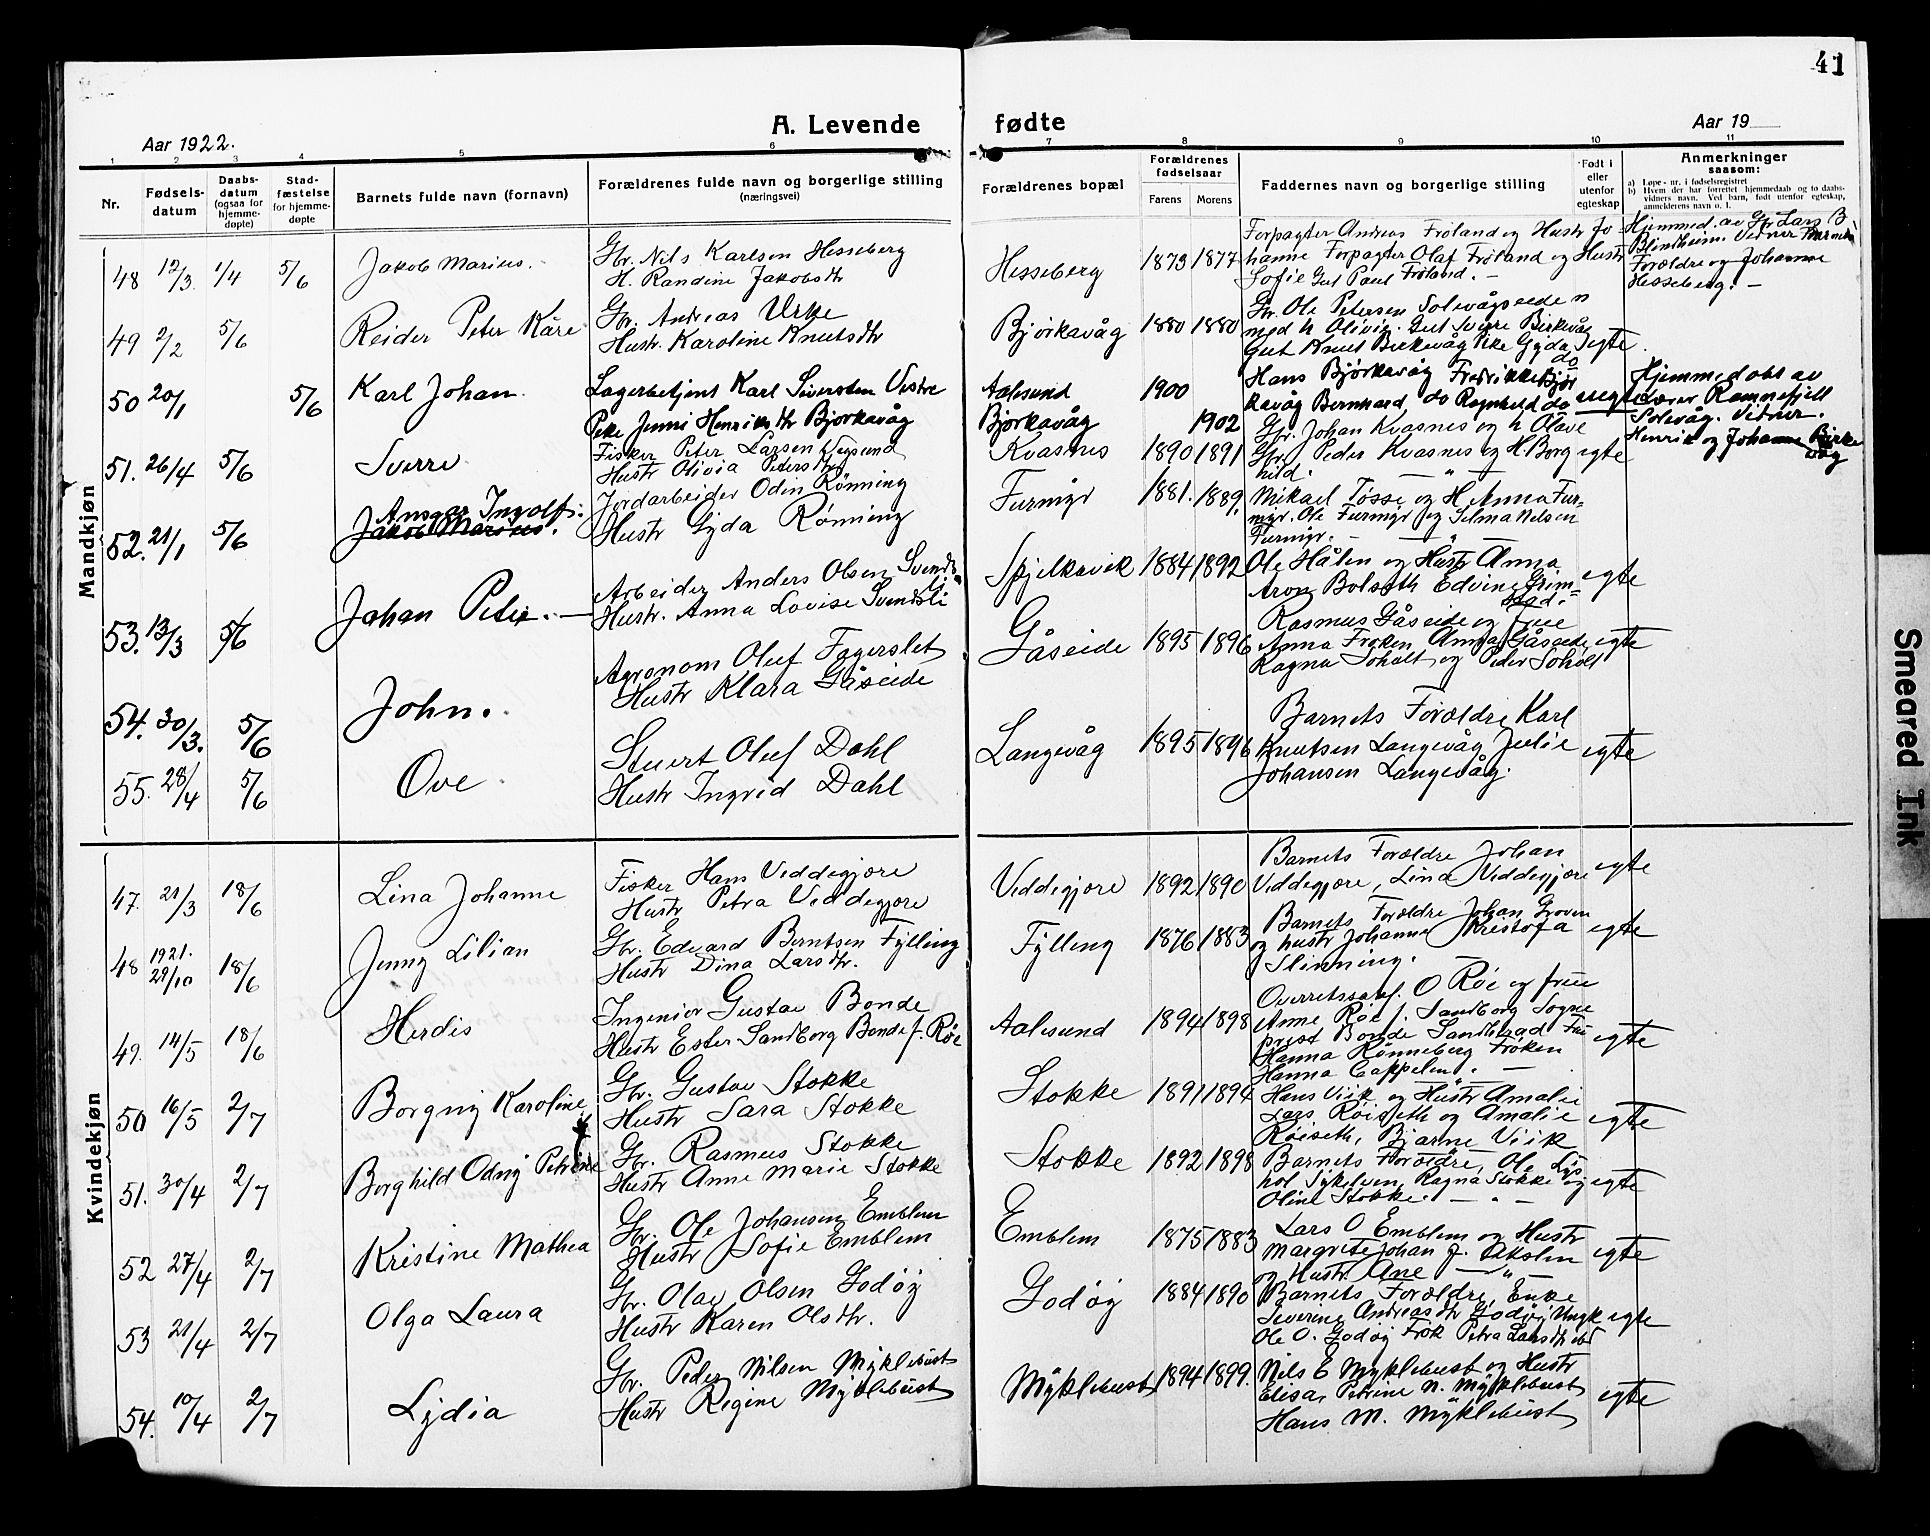 41
A. Levende fødte
Aar 1922.
Aar 19
1 2 3 4 5 6 7 8 9 10 11
Nr.
Fødsels-
datum
Daabs-
datum
(ogsaa for
hjemme-
døpte)
Stad-
fæstelse
for hjemme-
døpte
Barnets fulde navn (fornavn)
Forældrenes fulde navn og borgerlige stilling
(næringsvei)
Forældrenes bopæl
Forældrenes
fødselsaar
Farens Morens
Faddernes navn og borgerlige stilling
Født i
eller
utenfor
egteskap
Anmerkninger
saasom:
a) Løpe-nr. i fødselsregistret
b) Hvem der har forrettet hjemmedaab og to daabs-
vidners navn. Ved barn, født utenfor egteskap,
anmelderens navn o. l.
Mandkjøn
48 12/3 1/4 5/6
Jakob Marius.
Gbr. Nils Karlsen Hesseberg
H. Randine Jakobsdtr
Hesseberg
1873 1877
Forpagter Andreas Frøland og Hustr Jo
hanne Forpagter Olaf Frøland og Hustr
Sofie Gut Paul Frøland. –
Hjemmed. av Gbr Lars B
Blindheim. Vidner Barnets
Forældre og Johanne
Hesseberg. –
49 2/2 5/6
Reidar Peter Kåre
Gbr. Andreas Urke
Hustr. Karoline Knutsdtr
Bjørkavåg
1880 1880
Gbr. Ole Petersen Solevågseide n
med h Olivia. Gut Sverre Birkevåg
Gut Knut Birkevåg Pike Gyda do
egte
50 20/1 5/6
Karl Johan
Lagerbetjent Karl Sivertsen Vestre
Pike Jenni Henriksdtr Bjørkavåg
Aalesund
Bjørkavåg
1900
1902
Hans Bjørkavåg Fredrikke Bjør
kavåg Bernhard do Ragnhild do
uegte
Hjemmedøbt av
Lærer Rammefjell
Solevåg. Vidner.
Henrik og Johanne Birke
våg
51. 26/4 5/6
Sverre
Fisker Peter Larsen Vegsund
Hustr Olivia Petersdtr
Kvasnes
1890 1891
Gbr. Johan Kvasnes og h Olave
Gbr. Peder Kvasnes og H. Borg
hild. – " –
egte
52. 21/1 5/6
Ansgar Ingolf.
Jakob Marius.
Jordarbeider Odin Rønning
Hustr Gyda Rønning
Furmyr
1881. 1889.
Mikael Tøsse og H Anna Fur-
myr. Ole Furmyr og Selma Nilsen
Furmyr. – " –
53. 13/3 5/6
Johan Peter. –
Arbeider Anders Olsen Svendsli
Hustr. Anna Lovise Svendsli
Spjelkavik
1884 1892
Ole Hålen og Hustr Anna
Aron Bolseth Edvine Grim-
stad.
egte
54. 30/3. 5/6
John.
Agronom Oluf Fagerslet
Hustr Klara Gåseide
Gåseide
1895 1896
Rasmus Gåseide og frue
Anna Frøken Anna Gåseide
Ragna Soholt og Peder Soholt
egte
55. 28/4 5/6
Ove
Stuert Oluf Dahl
Hustr Ingrid Dahl
Langevåg
1895 1896
Barnets Forældre Karl
Knutsen Langevåg Julie
Johansen Langevåg.
egte
Kvindekjøn
47. 21/3 18/6
Lina Johanne
Fisker Hans Veddegjøre
Hustr Petra Veddegjøre
Veddegjøre
1892 1890
Barnets Forældre Johan
Veddegjøre, Lina Veddegjøre
egte
48 1921. 29/10 18/6
Jenny Lilian
Gbr. Edvard Berntsen Fylling
Hustr Dina Larsdtr.
Fylling
1876 1883
Barnets Forældre Johan Groven
og hustr Johanne Kristofa
Slinning. –
egte
49. 14/5 18/6
Herdis
Ingeniør Gustav Bonde
Hustr Ester Sandborg Bonde f. Røe
Aalesund
1894 1898
Overretssakf. O Røe og frue
Anne Røe f. Sandborg Sogne
prest Bonde Sandstrad Fru
Hanna Rønneberg Frøken
Hanna Cappelen. –
egte
50 16/5 2/7
Borgny Karoline
Gbr. Gustav Stokke
Hustr Sara Stokke
Stokke
1891 1894
Hans Viik og Hustr Amalie
Lars Røiseth og Amalie
Røiseth, Bjarne Viik
egte
51. 30/4 2/7
Borghild Odny Petrine
Gbr. Rasmus Stokke
Hustr Anne Marie Stokke
Stokke
1892 1898
Barnets Forældre, Ole Lys
hol Sykelven, Ragna Stokke og
Oline Stokke. – " –
egte
52 27/4 2/7
Kristine Mathea
Gbr. Ole Johansen Emblem
Hustr Sofie Emblem
Emblem
1875 1883
Lars O Emblem og Hustr
Margrete Johan J. Akslen
og Hustr Ane – " –
egte
53 21/4 2/7
Olga Laura
Gbr. Olav Olsen Godøy
Hustr Karen Olsdtr.
Godøy
1884 1890
Barnets Forældre, Enke
Severine Andreasdtr Godøy, Ungk
Ole O. Godøy Frøk Petra Larsdtr ibd
egte
54. 10/4 2/7
Lydia
Gbr. Peder Nilsen Myklebust
Hustr Regine Myklebust
Myklebust
1894 1899.
Nils E Myklebust og Hustr
Elisa, Petrine N. Myklebust
Hans M. Myklebust
egte
Smeared Ink